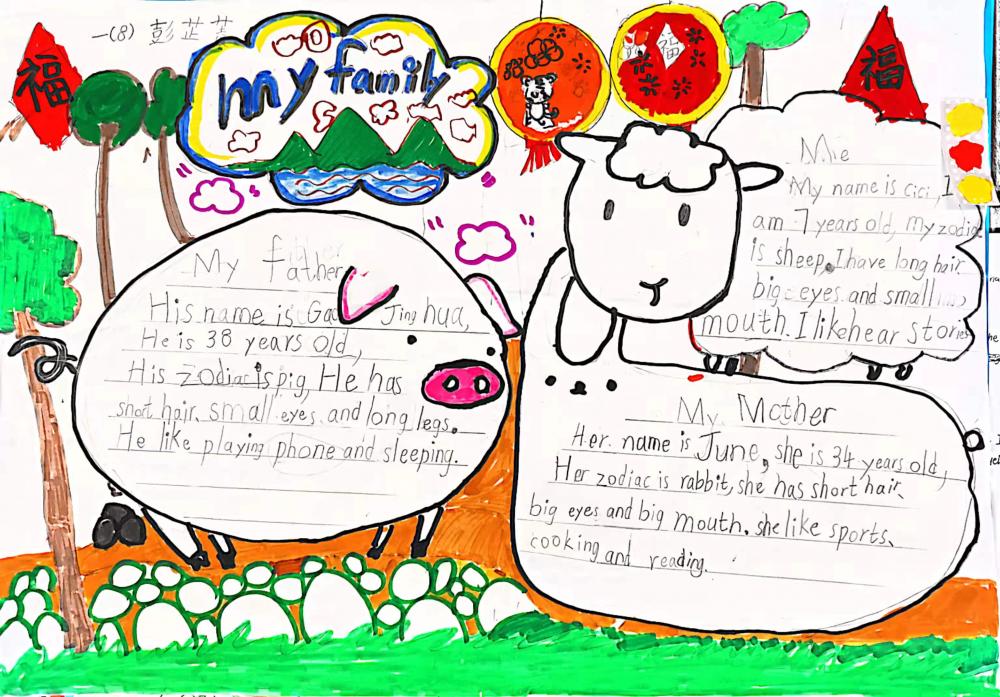 一(8) 彭芷
my family
福
福
福
My father
His name is Gao Jing hua,
He is 38 years old,
His zodiac is pig, He has
short hair, small eyes and long legs.
He like playing phone and sleeping.
Me
My name is cici, I
am 7 years old, my zodia
is sheep. I have long hair
big eyes and small
mouth. I like hear stories
My Mother
Her name is June, she is 34 years old,
Her zodiac is rabbit, she has short hair,
big eyes and big mouth. she like sports,
cooking and reading.